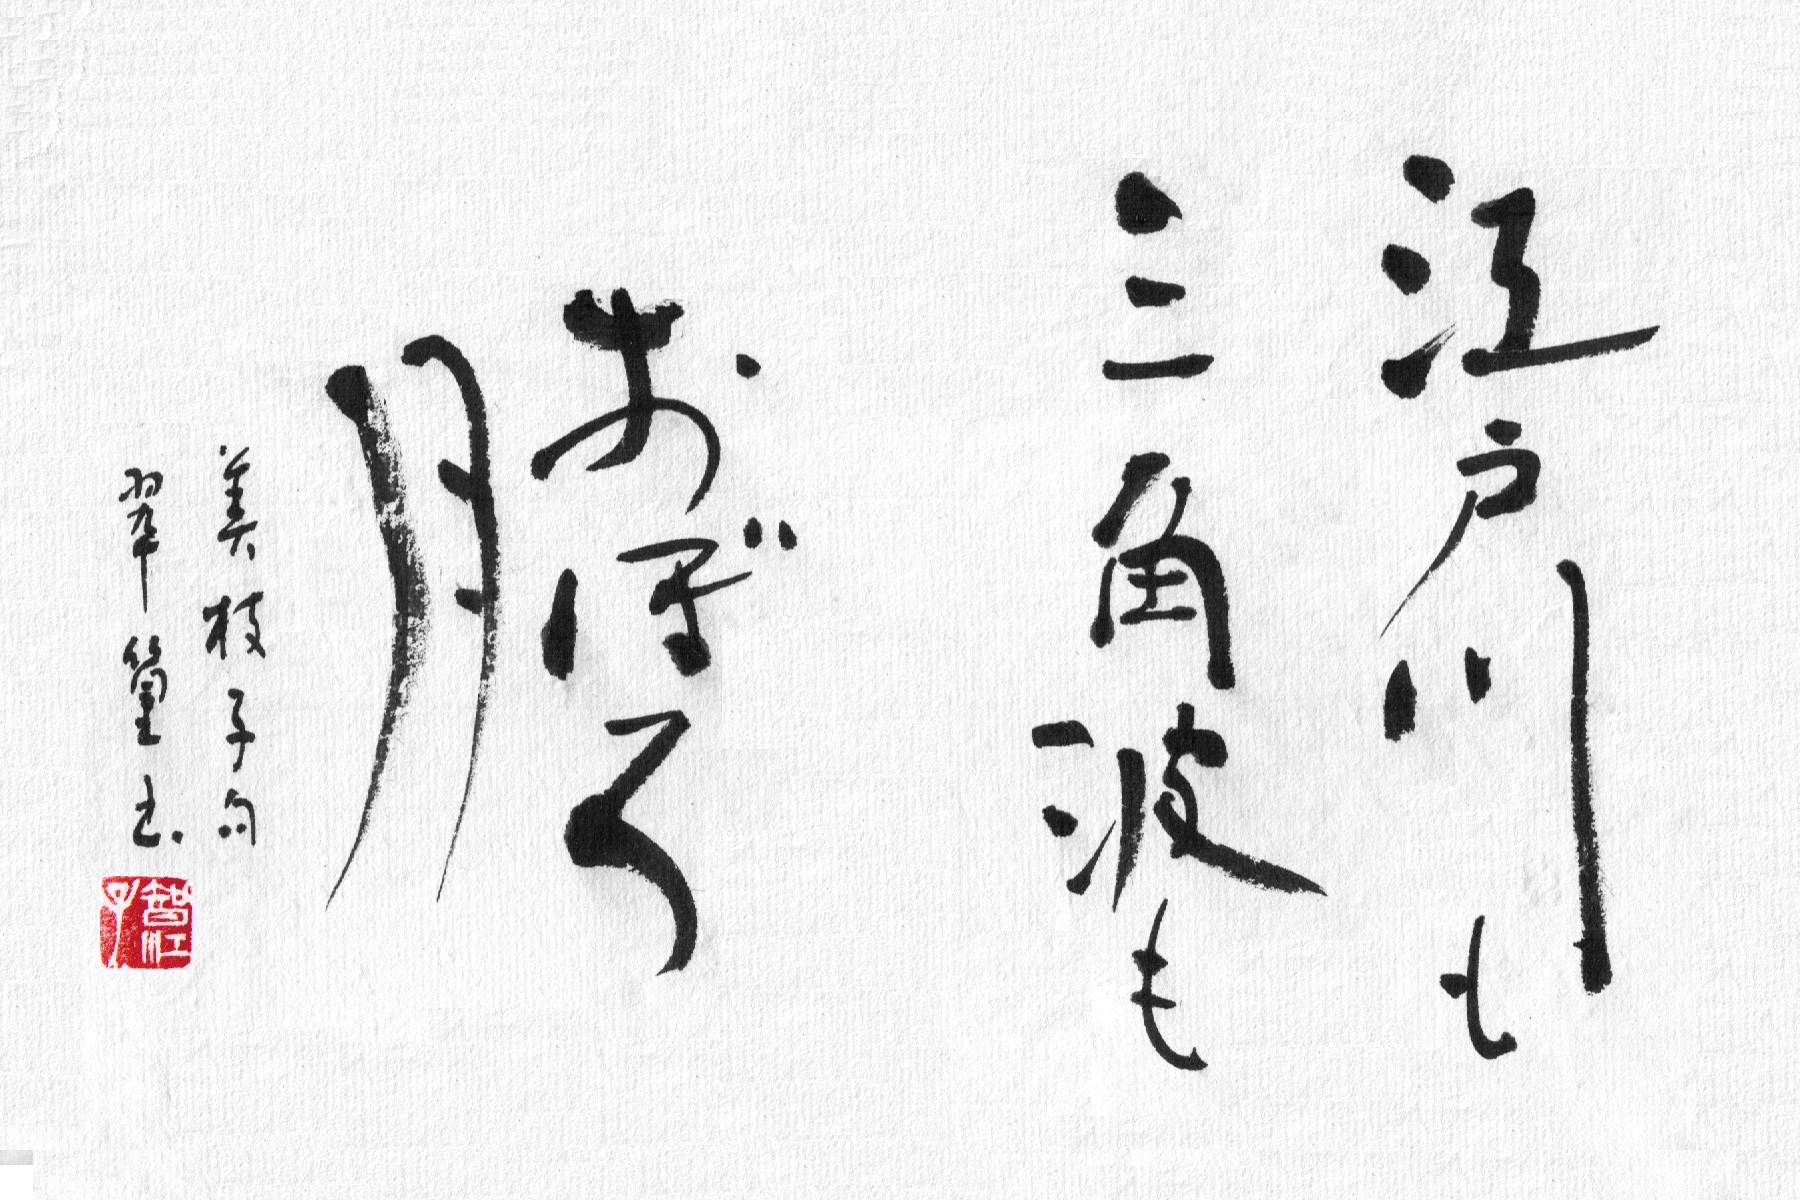 江戸川も
三角波も
おぼろ
月
美枝子句
翠篁書